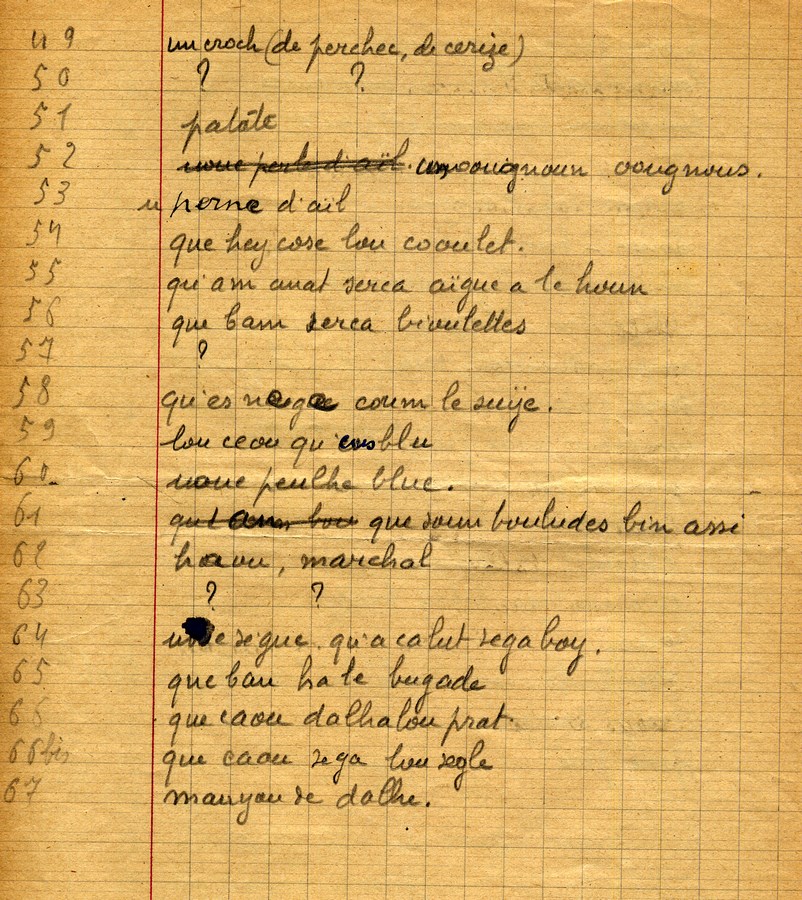 49 un croch (de perchec, de cerize)
50 ? ?
51 patate
52 uoue perle d'aïl. un oougnoun oougnous.
53 u perne d'aïl
54 que hey cose lou cooulet.
55 qu'am anat serca aïgue a le houn
56 que bam serca bioulettes
57 ?
58 qu'es nege coum le suije.
59 lou ceou qu'es blu
60 uoue peulhe blue.
61 que soun bouludes bin assi
62 haou, marchal
63 ? ?
64 segue qu'a calut sega boy.
65 que bau ha le bugade
66 que caou dalha lou prat
66 bis que caou sega lou segle
67 manyou de dalhe.